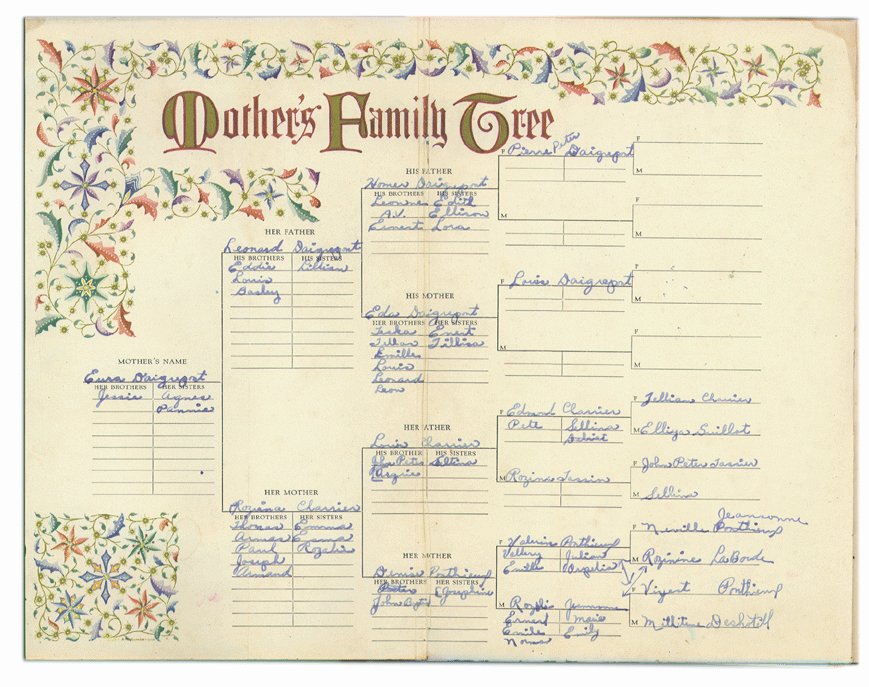 Mother's Family Tree
MOTHER'S NAME
Eura Daigrepont
HER BROTHERS HER SISTERS
Jessie Agnes
Fannie
HER FATHER
Leonard Daigrepont
HIS BROTHERS HIS SISTERS
Eddie Lillian
Louis
Basley
HER MOTHER
Roziana Charrier
HER BROTHERS HER SISTERS
Thomas Emma
Armas Esma
Paul Rozalie
Joseph
Armand
HIS FATHER
Homer Daigrepont
HIS BROTHERS HIS SISTERS
Leonne Edith
A.V. Ellison
Ernest Lora
HIS MOTHER
Eda Daigrepont
HER BROTHERS HER SISTERS
Enest
Emilles
Louis
Leonard
Leon
HER FATHER
Louis Charrier
HIS BROTHERS HIS SISTERS
John Pete Seltina
HER MOTHER
Denise Ponthieux
HER BROTHERS HER SISTERS
Josephine
John
F Pierre Peter Daigrepont
M
F Louis Daigrepont
M
F Edmond Charrier
Pete Sellina
M Rozina Tassin
F Valerin Ponthieux
Vallery Julian
Emille
M Rozelis
Ernest Marie
Emile Emily
Norma
F
M
F
M
F
M
F
M
F Jullian Charrier
M Elliza Guillot
F John Peter
M Selhina
Jeansonne
F Neville Ponthieux
M Rozinne LaBorde
F Vizent Ponthieux
M Deshotell